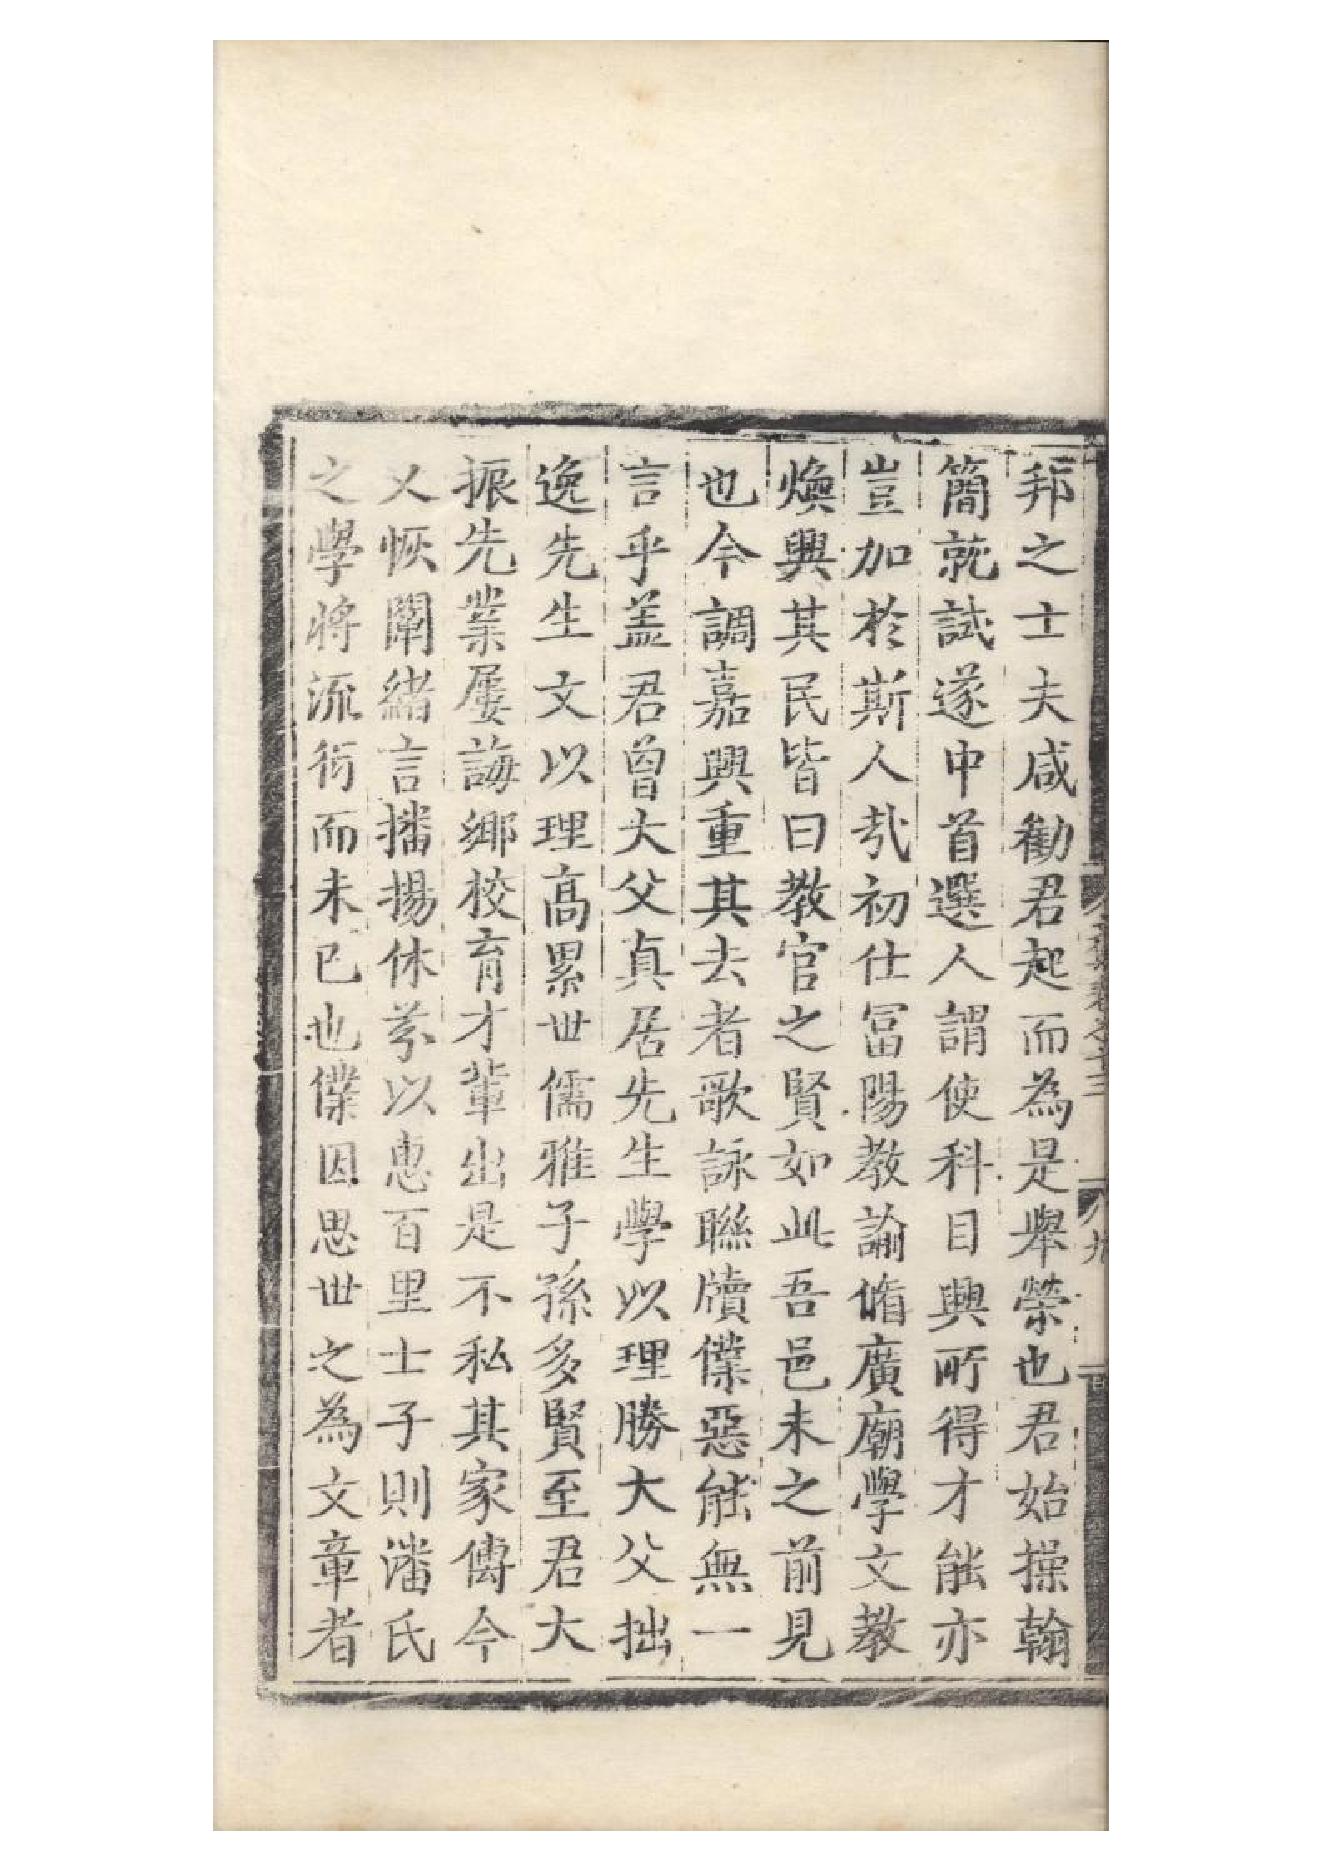 邦之士夫咸勸君起而為是舉榮也君始操翰
簡就試遂中首選人謂使科目興所得才能亦
豈加於斯人㢤初仕冨陽教諭脩廣廟學文教
煥興其民皆曰教官之賢如此吾邑未之前見
也今調嘉興重其去者歌詠聯牘僕惡能無一
言乎盖君曾大父真居先生學以理勝大父拙
逸先生文以理高累世儒雅子孫多賢至君大
振先業屢誨鄉校育才輩出是不私其家傳今
乂恢闡緒言播揚休芬以惠百里士子則潘氏
之學將流衍而未已也僕因思世之為文章者